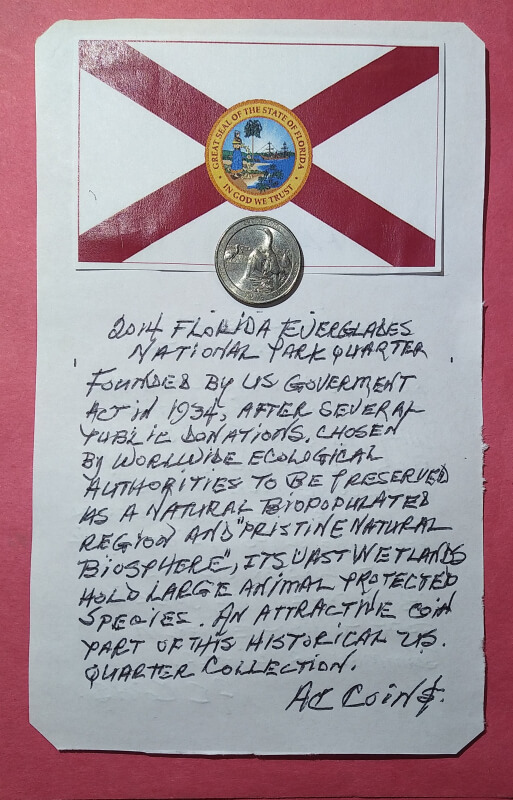 GREAT SEAL OF THE STATE OF FLORIDA
IN GOD WE TRUST
2014 FLORIDA EVERGLADES
NATIONAL PARK QUARTER
FOUNDED BY US GOVERMENT
ACT IN 1934, AFTER SEVERAL
PUBLIC DONATIONS. CHOSEN
BY WORLWIDE ECOLOGICAL
AUTHORITIES TO BE PRESERVED
AS A NATURAL BIOPOPULATED
REGION AND "PRISTINE NATURAL
BIOSPHERE", ITS VAST WETLANDS
HOLD LARGE ANIMAL PROTECTED
SPECIES. AN ATTRACTIVE COIN
PART OF THIS HISTORICAL US.
QUARTER COLLECTION.
AC COIN$.